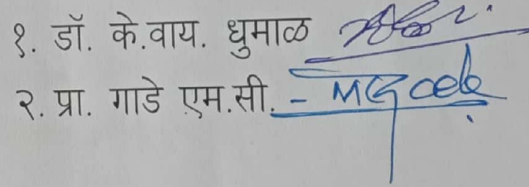 १. डॉ. के.वाय. धुमाळ
२. प्रा. गाडे एम.सी. - MGade